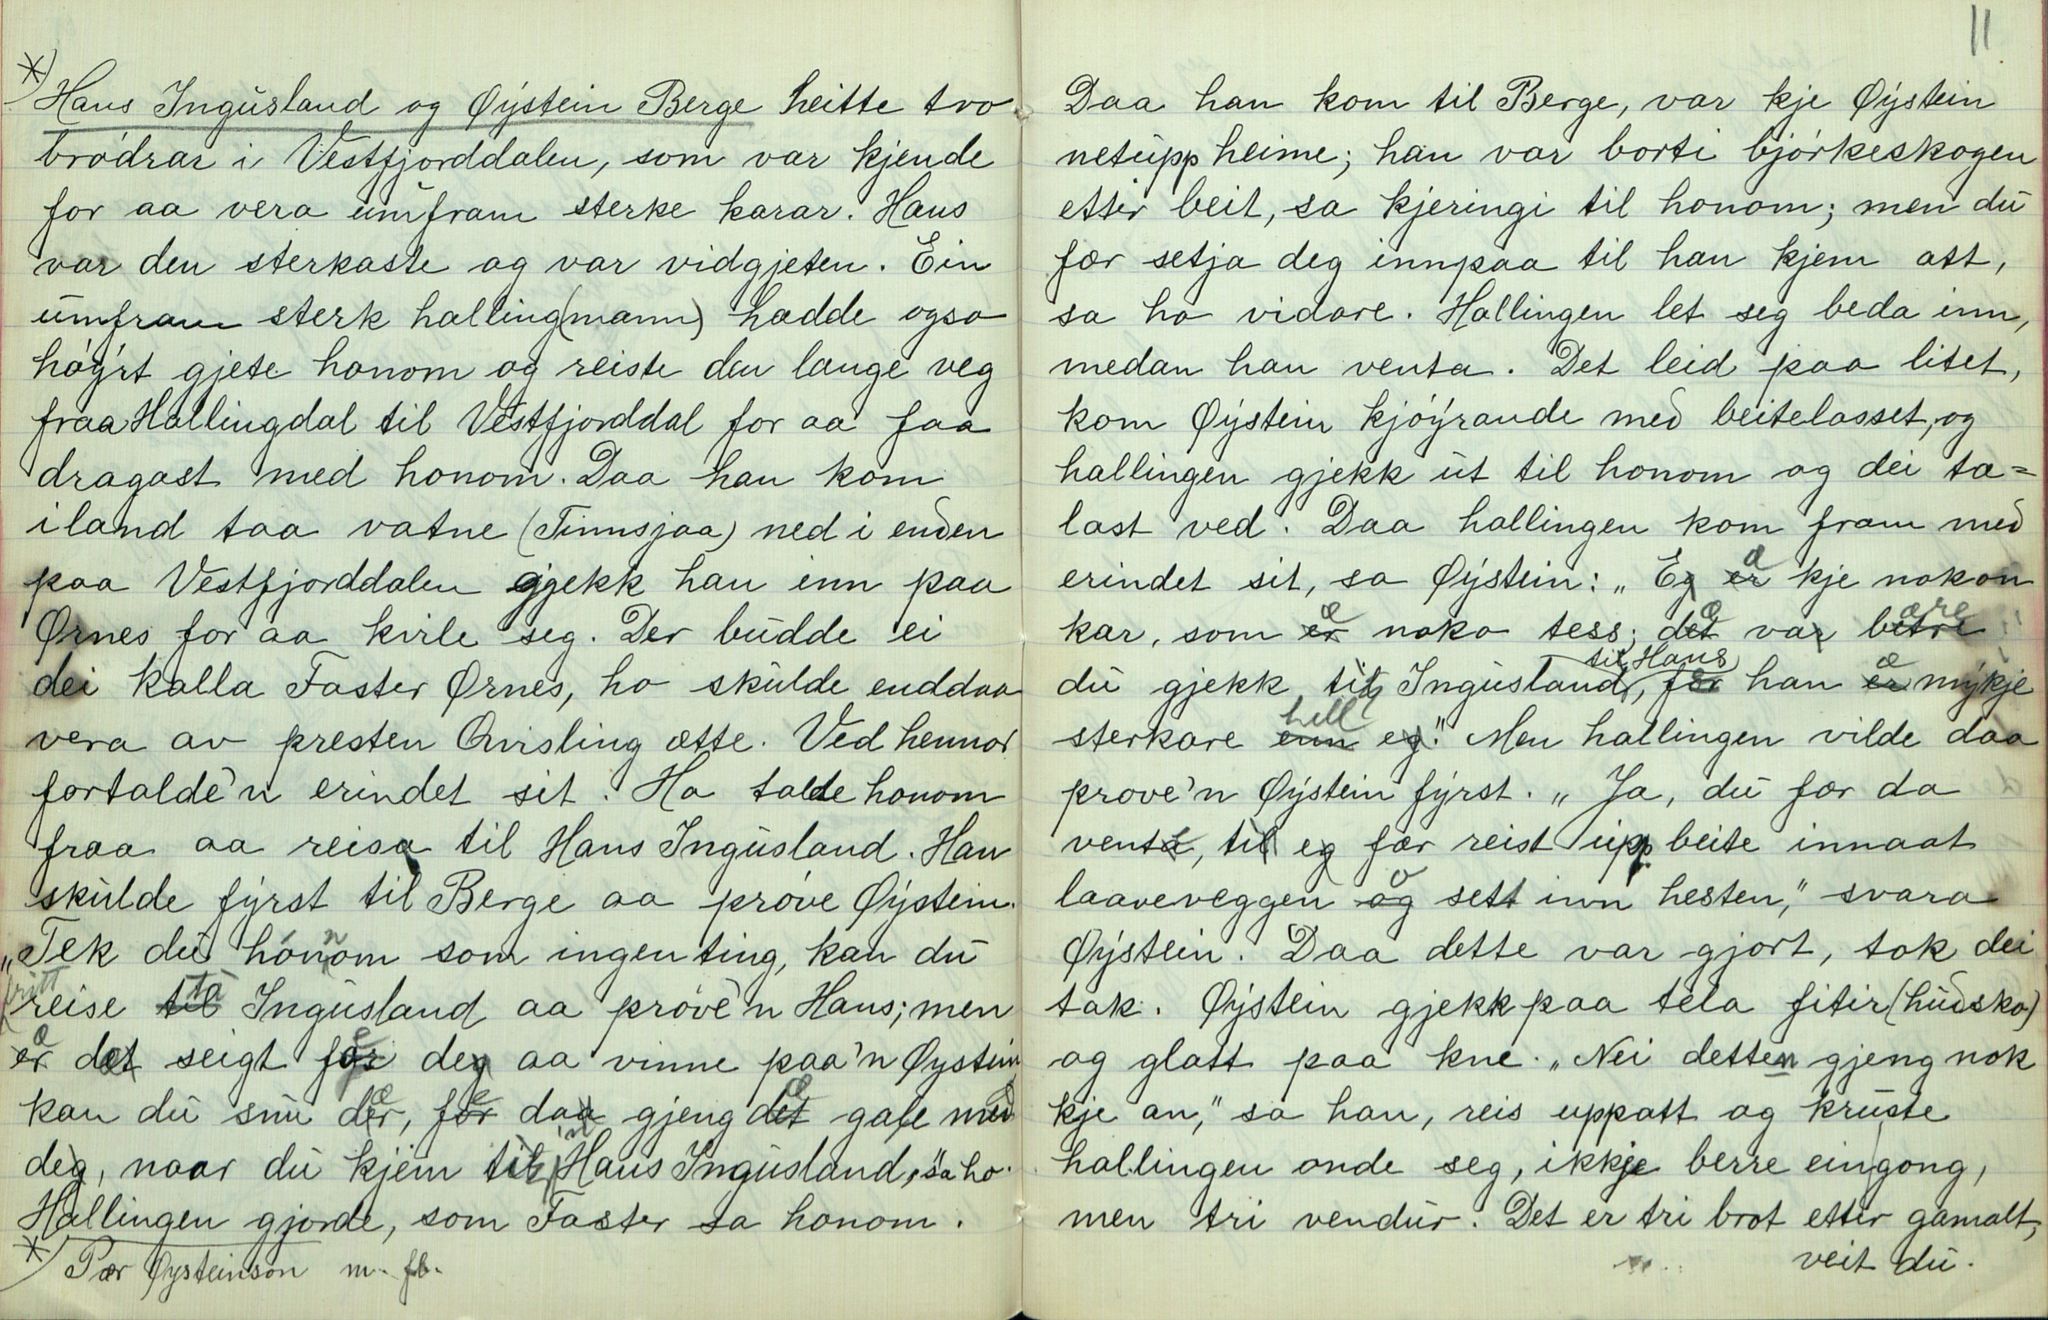 *) Hans Ingusland og Øystein Berge heitte tvo
brødrar i Vestfjorddalen, som var kjende
for aa vera umfram sterke karar. Hans
var den sterkaste og var vidgjeten. Ein
umfram sterk halling(mann) hadde ogso
høyrt gjete honom og reiste den lange veg
fraa Hallingdal til Vestfjorddal for aa faa
dragast med honom. Daa han kom
i land taa vatne (Tinnsjaa) ned i enden
paa Vestfjorddalen gjekk han inn paa
Ørnes for aa kvile seg. Der budde ei
dei kalla Faster Ørnes, ho skulde enddaa
vera av presten Qvisling ætte. Ved hennar
fortalde'n erindet sit. Ho talde honom
fraa aa reisa til Hans Ingusland. Han
skulde fyrst til Berge aa prøve Øystein.
„Tek du honom som ingen ting, kan du
fritt
reise til ta Ingusland aa prøve'n Hans; men
er æ det seigt for deg aa vinne paa'n Øystein
kan du snu der, for daa gjeng det gale med
deg, naar du kjem til 'n Hans Ingusland," sa ho.
Hallingen gjorde, som Faster sa honom.
*) Pær Øysteinson m. fl.
11
Daa han kom til Berge, var kje Øystein
netupp heime; han var borti bjørkeskogen
etter beit, sa kjeringi til honom; men du
fær setja deg innpaa til han kjem att,
sa ho vidare. Hallingen let seg beda inn,
medan han venta. Det leid paa litet,
kom Øystein kjøyrande med beitelasset, og
hallingen gjekk ut til honom og dei ta=
last ved. Daa hallingen kom fram med
erindet sit, sa Øystein: „Eg er æ kje nokon
kar, som er æ noko tess; det æ var betre ære
til Hans
du gjekk til Ingusland, for han er æ mykje
hell
sterkare enn eg." Men hallingen vilde daa
prøve'n Øystein fyrst. „Ja, du fær da
vente, til eg fær reist upp beite innaat
laaveveggen og o sett inn hesten," svara
Øystein. Daa dette var gjort, tok dei
tak. Øystein gjekk paa tela fitir (hudsko)
og glatt paa kne. „Nei detten gjeng nok
kje an," sa han, reis uppatt og kruste
hallingen onde seg, ikkje berre eingong,
men tri vendur. Det er tri brot etter gamalt,
veit du.